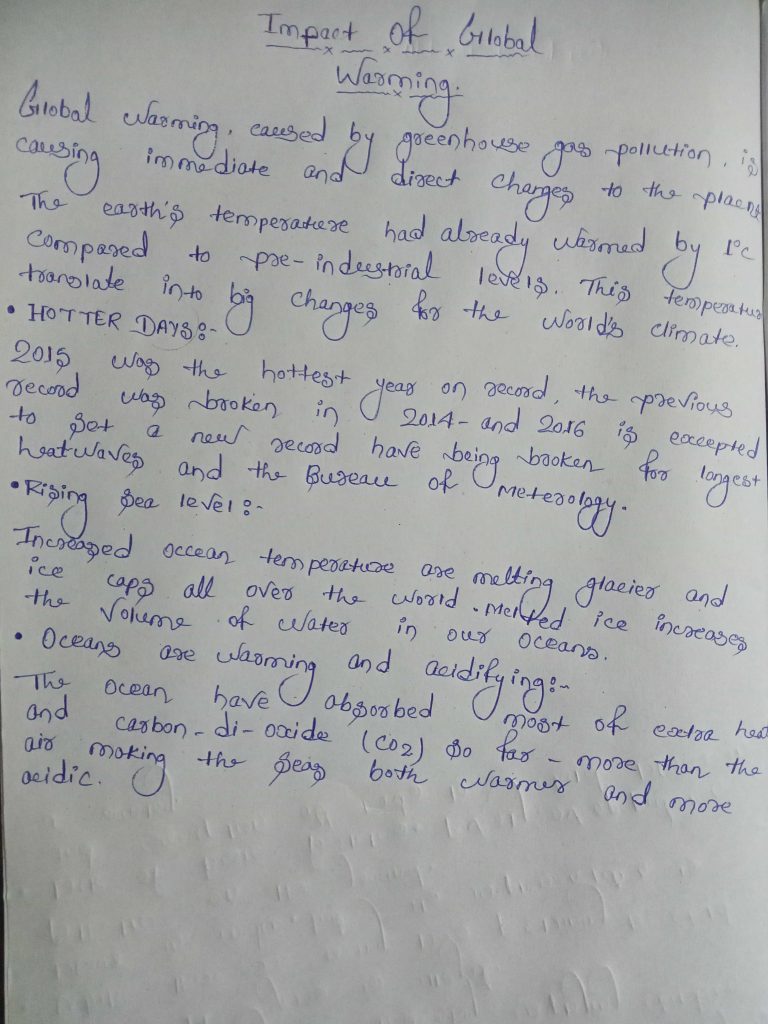 Impact of Global
Warming.
Global warming, caused by greenhouse gas pollution, is
causing immediate and direct changes to the plaent
The earth's temperature had already warmed by 1°c
compared to pre-industrial levels. This temperature
translate into big changes for the world's climate.
• HOTTER DAYS:-
2015 was the hottest year on record, the previous
record was broken in 2014- and 2016 is excepted
to set a new record have being broken for longest
heatwaves and the Bureau of meterology.
• Rising sea level:-
Increased occean temperature are melting glacier and
ice caps all over the world. Melted ice increases
the volume of water in our oceans.
• Oceans are warming and acidifying:-
The ocean have absorbed most of extra heat
and carbon-di-oxide (CO2) so far - more than the
air making the seas both warmer and more
acidic.